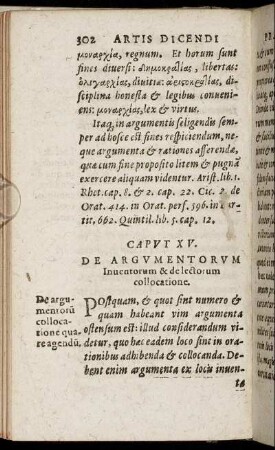 302 ARTIS DICENDI
μοναρχία, regnum. Et horum sunt
fines diuersi: δημοκρατίας, libertas:
ὀλιγαρχίας, diuitiæ: ἀριστοκρατίας, di-
sciplina honesta & legibus conueni-
ens: μοναρχίας, lex & virtus.
Itaq, in argumentis seligendis sem-
per ad hosce est fines respiciendum, ne-
que argumenta & rationes afferendæ,
quæ cum fine proposito litem & pugnā
exercere aliquam videntur. Arist. lib. 1.
Rhet. cap. 8. & 2. cap. 22. Cic. 2. de
Orat. 414. in Orat. perf. 596. in Par-
tit. 662. Quintil. lib. 5. cap. 12.
CAPVT XV.
DE ARGVMENTORVM
Inuentorum & delectorum
collocatione.
De argu-
mentorū
colloca-
tione qua-
re agendū.
POstquam, & quot sint numero &
quam habeant vim argumenta
ostensum est: illud considerandum vi-
detur, quo hæc eadem loco sint in ora-
tionibus adhibenda & collocanda. De-
bent enim argumenta ex locis inuen-
ta